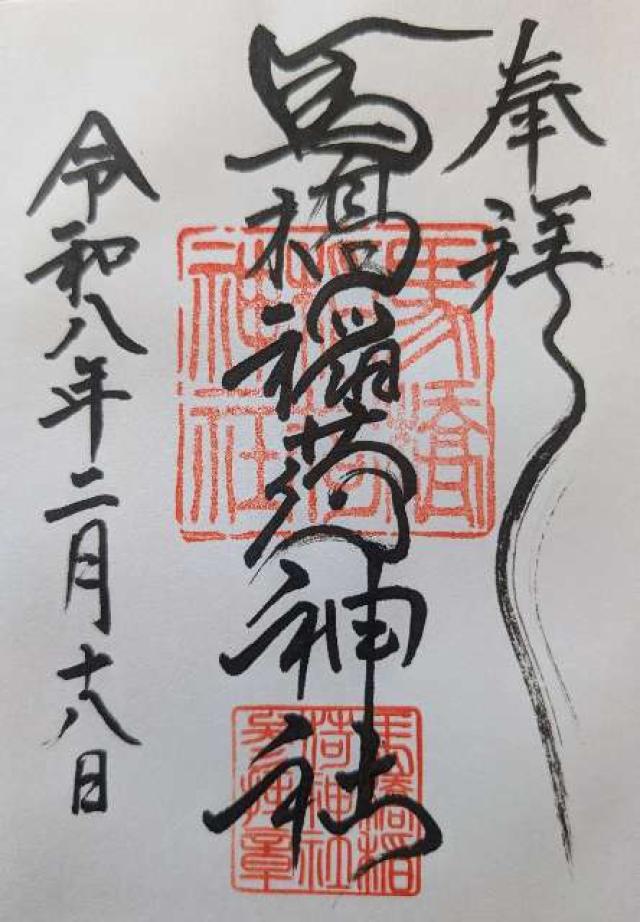 奉拝
馬橋稲荷神社
令和八年二月十八日
馬橋
稲荷
神社
馬橋稲
荷神社
参拝章